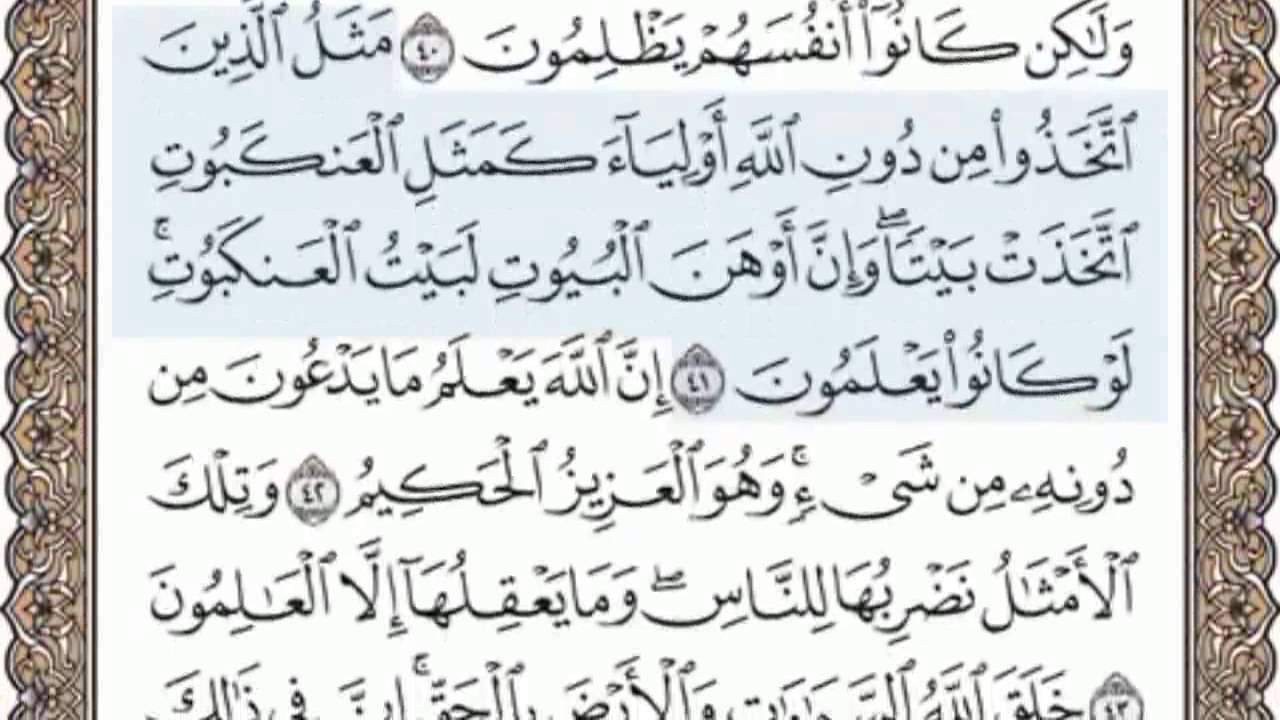 وَلَٰكِن كَانُوٓا۟ أَنفُسَهُمْ يَظْلِمُونَ ٤٠ مَثَلُ ٱلَّذِينَ
ٱتَّخَذُوا۟ مِن دُونِ ٱللَّهِ أَوْلِيَآءَ كَمَثَلِ ٱلْعَنكَبُوتِ
ٱتَّخَذَتْ بَيْتًا ۖ وَإِنَّ أَوْهَنَ ٱلْبُيُوتِ لَبَيْتُ ٱلْعَنكَبُوتِ ۚ
لَوْ كَانُوا۟ يَعْلَمُونَ ٤١ إِنَّ ٱللَّهَ يَعْلَمُ مَا يَدْعُونَ مِن
دُونِهِۦ مِن شَىْءٍ ۚ وَهُوَ ٱلْعَزِيزُ ٱلْحَكِيمُ ٤٢ وَتِلْكَ
ٱلْأَمْثَٰلُ نَضْرِبُهَا لِلنَّاسِ ۖ وَمَا يَعْقِلُهَآ إِلَّا ٱلْعَٰلِمُونَ
٤٣ خَلَقَ ٱللَّهُ ٱلسَّمَٰوَٰتِ وَٱلْأَرْضَ بِٱلْحَقِّ ۚ إِنَّ فِى ذَٰلِكَ